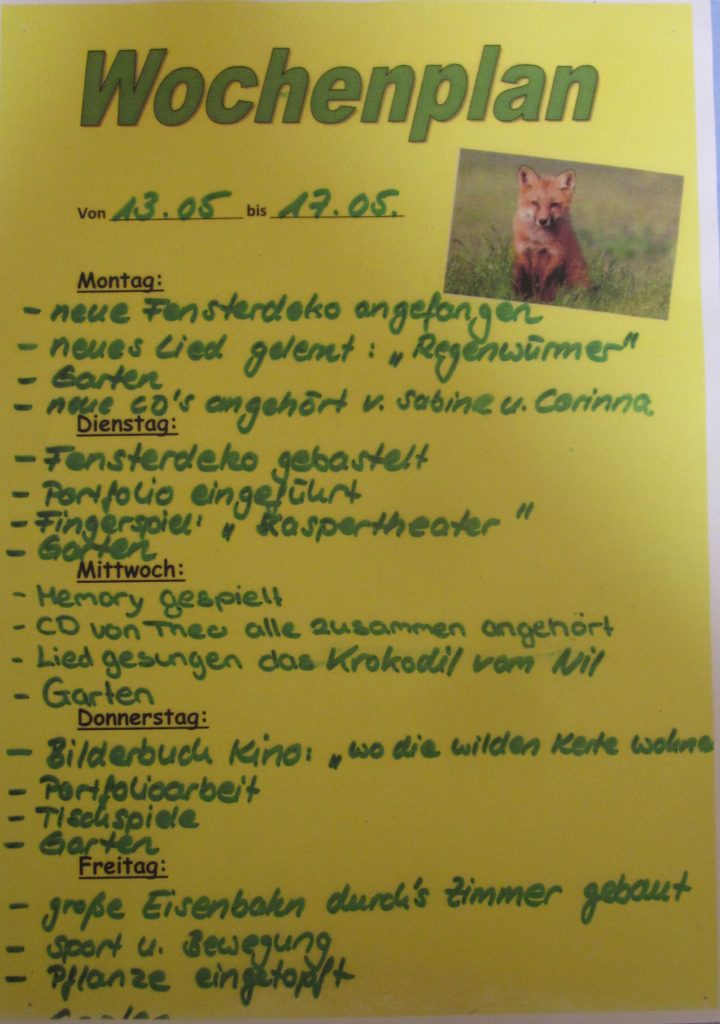 Wochenplan
Von 13.05 bis 17.05.
Montag:
- neue Fensterdeko angefangen
- neues Lied gelernt: „Regenwürmer"
- Garten
- neue CD's angehört v. Sabine u. Corinna
Dienstag:
- Fensterdeko gebastelt
- Portfolio eingeführt
- Fingerspiel: „Kaspertheater"
- Garten
Mittwoch:
- Memory gespielt
- CD von Theo alle zusammen angehört
- Lied gesungen das Krokodil vom Nil
- Garten
Donnerstag:
- Bilderbuch Kino: „wo die wilden Kerle wohne
- Portfolioarbeit
- Tischspiele
- Garten
Freitag:
- große Eisenbahn durch's Zimmer gebaut
- Sport u. Bewegung
- Pflanze eingetopft